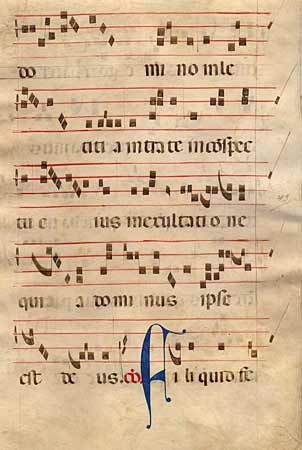 do mi no inle
titi a intrate in cospec
tu e ius inexultati o ne
qui a domi nus ipse
est de us. co. F i li quid fe